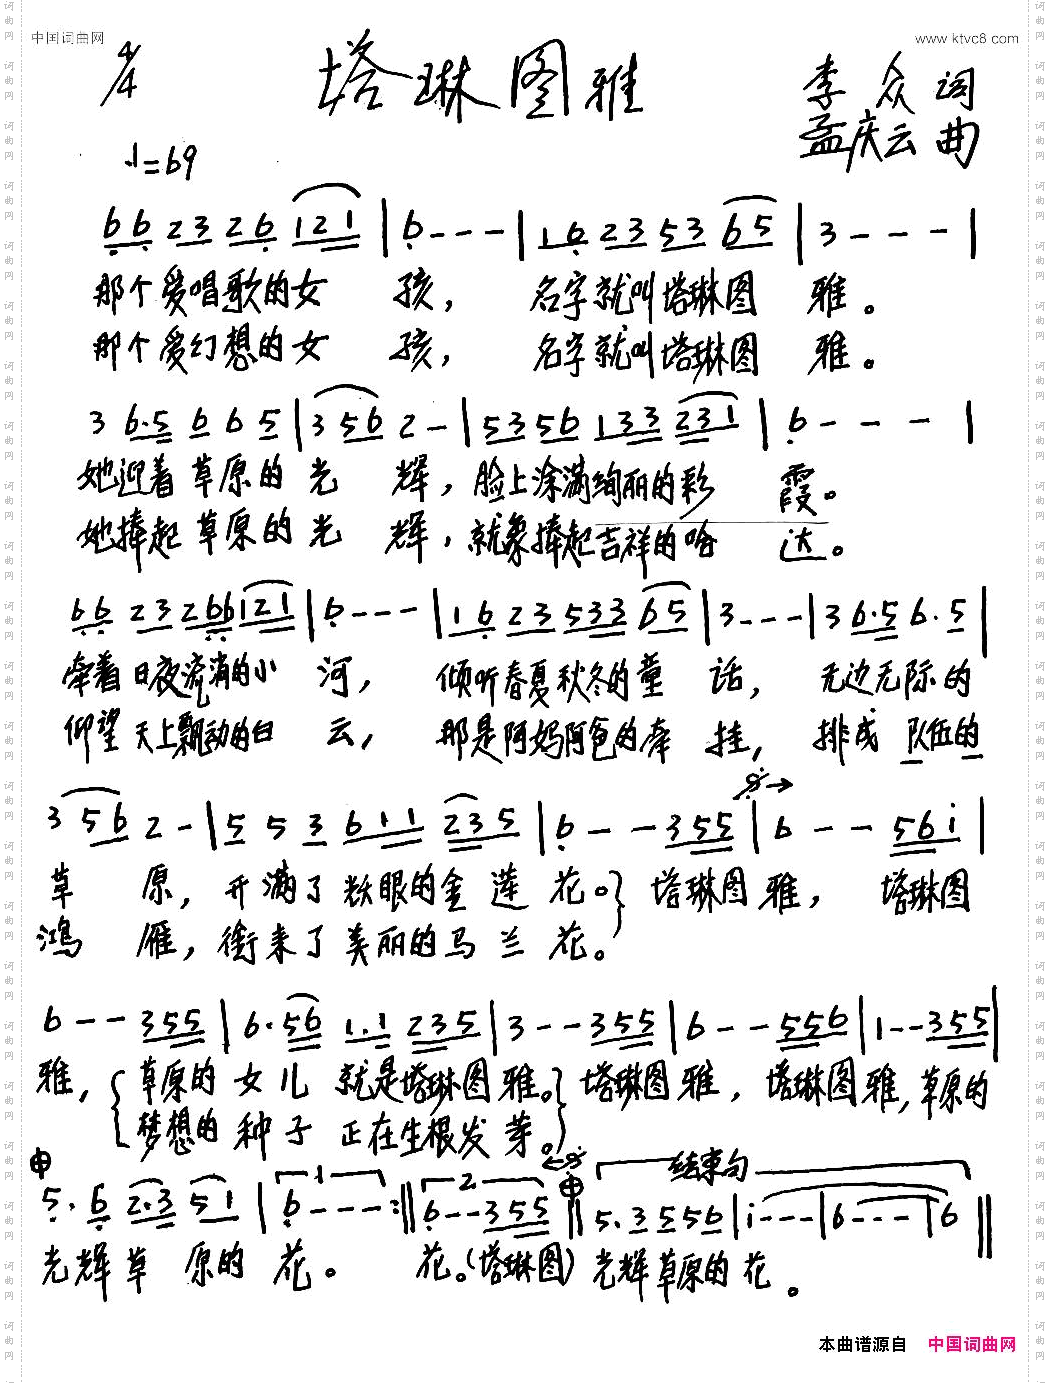 中国词曲网
www.ktvc8.com
4/4
塔琳图雅
李众 词
孟庆云 曲
♩=69
6 6 2 3 2 6 1 2 1 | 6 - - - | 1 6 2 3 5 3 6 5 | 3 - - - |
那个爱唱歌的女 孩， 名字就叫塔琳图 雅。
那个爱幻想的女 孩， 名字就叫塔琳图 雅。
3 6·5 6 6 5 | 3 5 6 2 - | 5 3 5 6 1 3 3 2 3 1 | 6 - - - |
她迎着草原的光 辉，脸上涂满绚丽的彩 霞。
她捧起草原的光 辉，就象捧起吉祥的哈 达。
6 6 2 3 2 6 6 1 2 1 | 6 - - - | 1 6 2 3 5 3 3 6 5 | 3 - - - | 3 6·5 6·5 |
牵着日夜流淌的小 河， 倾听春夏秋冬的童 话， 无边无际的
仰望天上飘动的白 云， 那是阿妈阿爸的牵 挂， 排成队伍的
3 5 6 2 - | 5 5 3 6 1 1 2 3 5 | 6 - - 3 5 5 | 6 - - 5 6 i |
草 原，开满了数眼的金莲花。} 塔琳图雅， 塔琳图
鸿 雁，衔来了美丽的马兰花。
6 - - 3 5 5 | 6·5 6 1·1 2 3 5 | 3 - - 3 5 5 | 6 - - 5 5 6 | 1 - - 3 5 5 |
雅，{ 草原的女儿 就是塔琳图雅。} 塔琳图雅，塔琳图雅，草原的
梦想的种子 正在生根发芽。
5·6 2·3 5 1 | 1 6 - - - :|| 2 6 - - 3 5 5 || 结束句 5·3 5 5 6 | i - - - | 6 - - - | 6 ||
光辉草 原的 花。 花。(塔琳图) 光辉草原的花。
本曲谱源自 中国词曲网